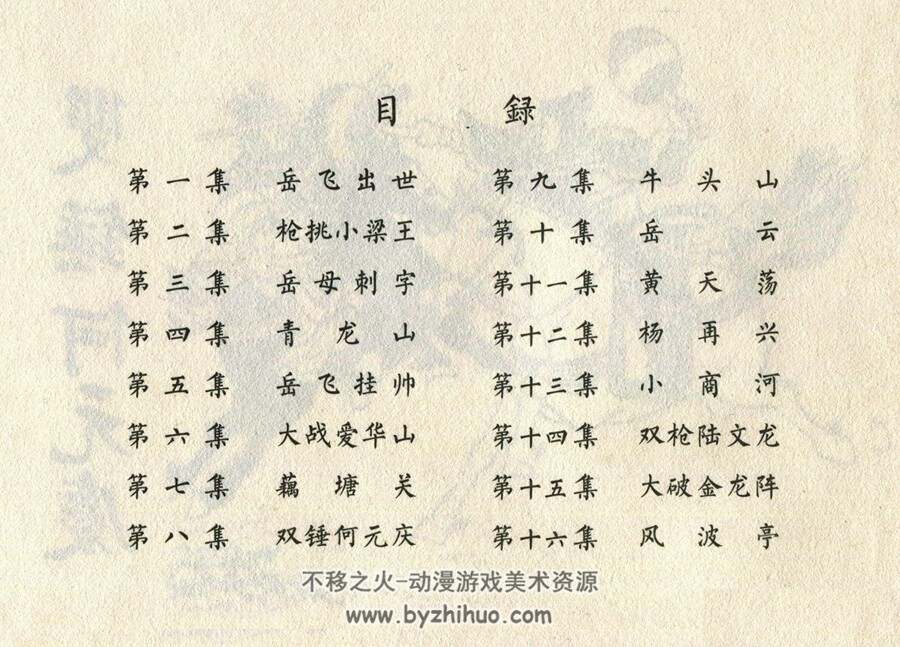 目錄
第一集 岳飞出世
第二集 枪挑小梁王
第三集 岳母刺字
第四集 青龙山
第五集 岳飞挂帅
第六集 大战爱华山
第七集 藕塘关
第八集 双锤何元庆
第九集 牛头山
第十集 岳云
第十一集 黄天荡
第十二集 杨再兴
第十三集 小商河
第十四集 双枪陆文龙
第十五集 大破金龙阵
第十六集 风波亭
不移之火-动漫游戏美术资源
www.byzhihuo.com